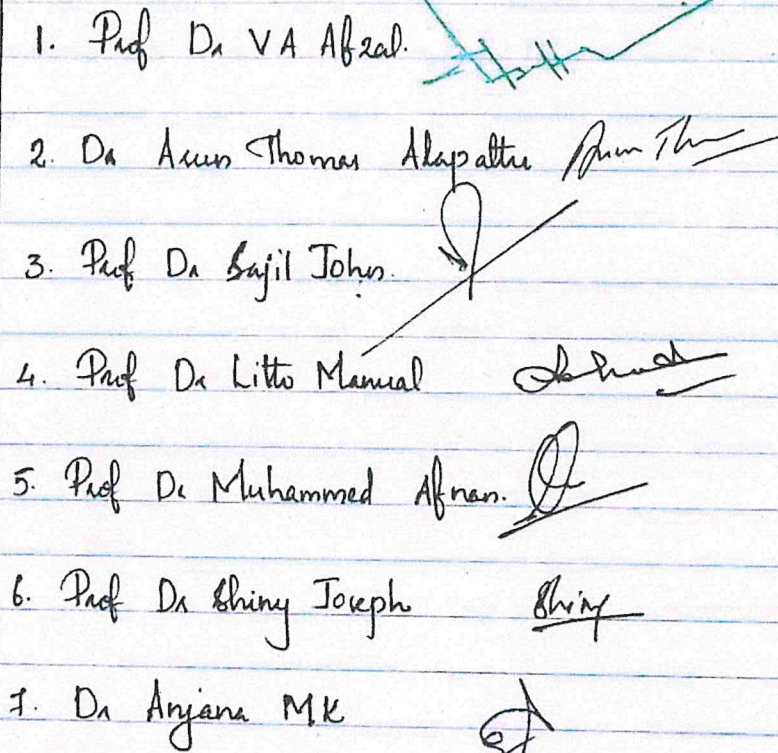 1. Prof Dr V A Afzal.
2. Dr Arun Thomas Alapattu Arun Th
3. Prof Dr Sajil John.
4. Prof Dr Litto Manual
5. Prof Dr Muhammed Afnan.
6. Prof Dr Shiny Joseph Shiny
7. Dr Anjana MK